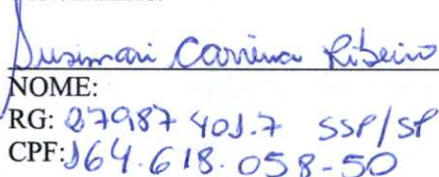 Susimari Carrena Ribeiro
NOME:
RG: 27987401.7 SSP/SP
CPF: 164.618.058-50